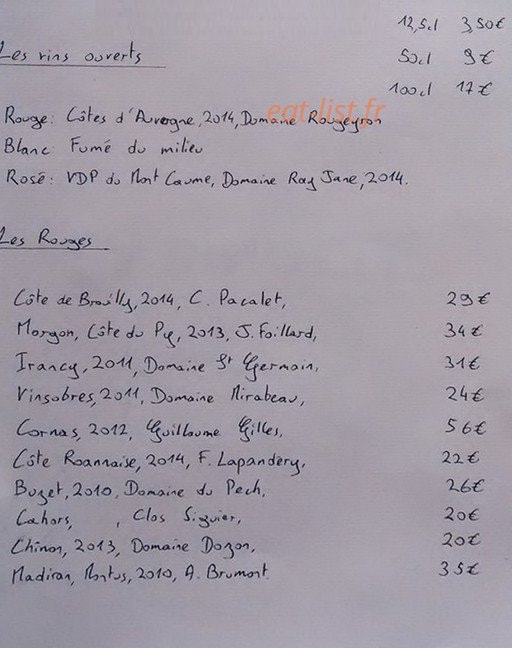 12,5cl 3,50€
Les vins ouverts 50cl 9€
100cl 17€
eat-list.fr
Rouge: Côtes d'Auvergne, 2014, Domaine Rougeyron
Blanc: Fumé du milieu
Rosé: VDP du Mont Caume, Domaine Ray Jane, 2014.
Les Rouges
Côte de Brouilly, 2014, C. Pacalet, 29€
Morgon, Côte du Py, 2013, J. Foillard, 34€
Irancy, 2011, Domaine St Germain, 31€
Vinsobres, 2011, Domaine Mirabeau, 24€
Cornas, 2012, Guillaume Gilles, 56€
Côte Roannaise, 2014, F. Lapandéry, 22€
Buzet, 2010, Domaine du Pech, 26€
Cahors, , Clos Siguier, 20€
Chinon, 2013, Domaine Dozon, 20€
Madiran, Montus, 2010, A. Brumont. 35€